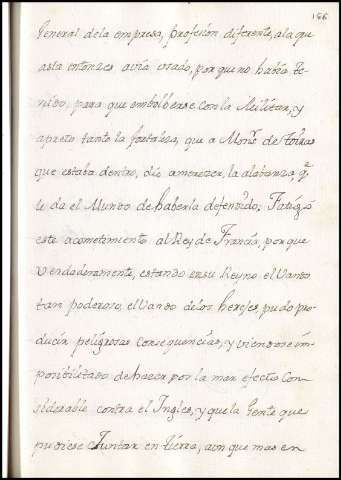 166
General dela empresa, profesion diferente, ala que
asta entonzes avia usado, por que no habia te-
nido, para que embolberse con la Militar, y
apreto tanto la fortaleza, que a Monsr. de Tohras
que estaba dentro, dio amerezer, la alabanza, q̃
le da el Mundo de haberla defendido; Fatigó
este acometimiento al Rey de Francia, por que
Verdaderamente, estando en su Reyno el Vando
tan poderoso, el Vando delos herejes, pudo pro-
ducir peligrosas consequencias, y viendose im-
posibilitado de hazer por la mar efecto Con-
siderable contra el Ingles, y que la Gente que
pudiese Juntar en tierra, aun que mas en